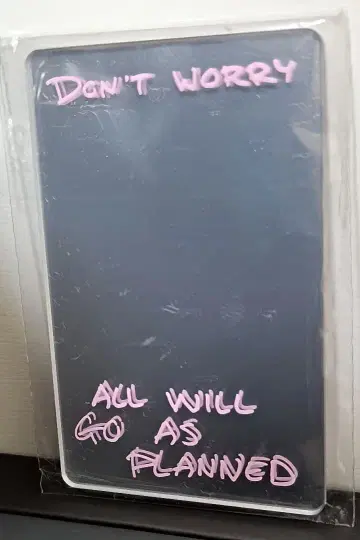 DON'T WORRY
ALL WILL
GO AS
PLANNED